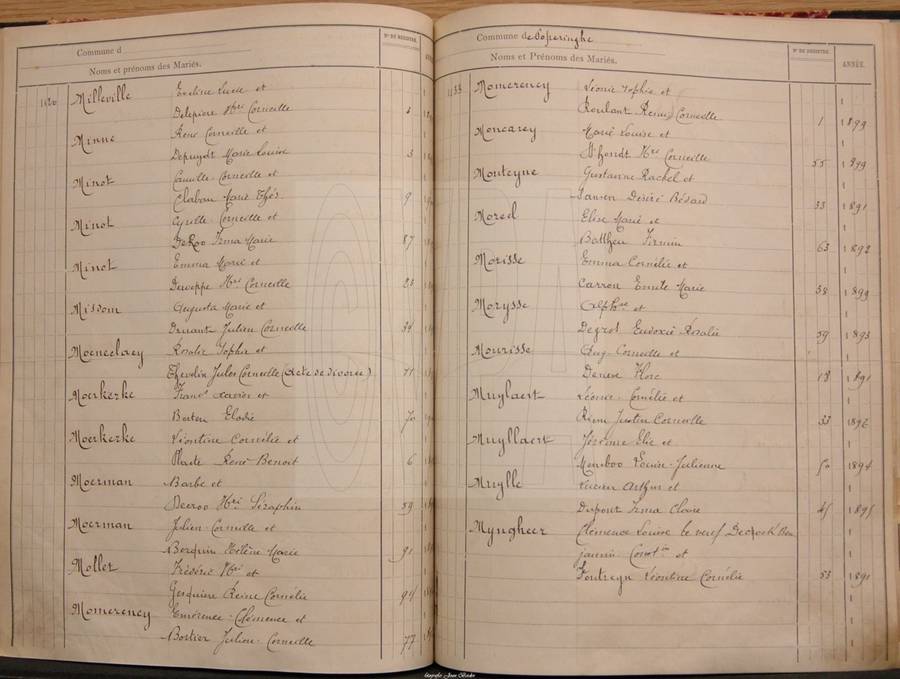 Commune d
Nos DE REGISTRE.
Noms et prénoms des Mariés.
Milleville Eveline Lucie et
Delepiere Hri Corneille 5
Minne René Corneille et
Depuydt Marie Louise 3
Minot Camille Corneille et
Clabau Marie Thés 9
Minot Cyrille Corneille et
DeRoo Irma Marie 87
Minot Emma Marie et
Deweppe Hri Corneille 23
Missom Augusta Marie et
Druant Julien Corneille 34
Moeneclaey Rosalie Sophie et
Thevelin Jules Corneille (acte de divorce) 71
Moerkerke Frans Xavier et
Berten Elodie 70
Moerkerke Léontine Cornélie et
René Benoit 6
Moerman Barbe et
Decroo Hri Séraphin 59
Moerman Julien Corneille et
Berquin Hélène Marie 91
Mollet Frédéric Hri et
Gesquiere Reine Cornélie 94
Momerency Emérence Clémence et
Bortier Julien Corneille 77
Commune de Poperinghe
Noms et Prénoms des Mariés.
Nos DE REGISTRE.
ANNÉE.
Momerency Léonie Sophie et
Roulant Remi Corneille 1 1899
Moncarey Marie Louise et
D'hondt Hri Corneille 55 1899
Monteyne Gustavine Rachel et
Sansen Désiré 33 1891
Moreel Elise Marie et
Battheu Firmin 63 1892
Morisse Emma Cornélie et
Carron Emile Marie 38 1899
Morysse Alphse et
Degrol Eudoxie Rosalie 59 1893
Mourisse Aug. Corneille et
Deneve Flore 18 1891
Muylaert Léonie Cornélie et
Justin Corneille 33 1896
Muyllaert Jérémie Elie et
Louise Julienne 50 1894
Muylle Lucien Arthur et
Dupont Irma Claire 45 1895
Myngheer Clémence Louise le veuf Decrock Ben
jamin Constin et
Fontreyn Léontine Cornélie 53 1891